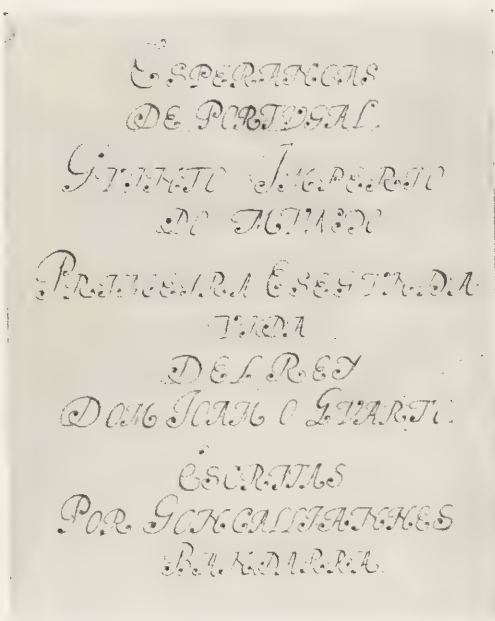 ESPERANCAS
DE PORTVGAL.
QVINTO IMPERIO
DO MVNDO
PRIMEIRA E SESVNDA
VIDA
DEL REY
DOM JOAM O QVARTO.
ESCRITAS
POR GONCALLIANNES
BANDARRA.